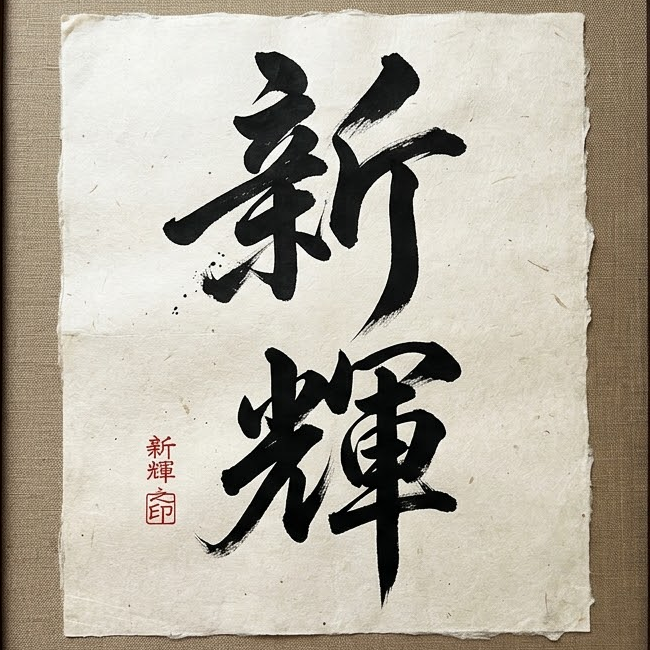 新輝
新輝之印